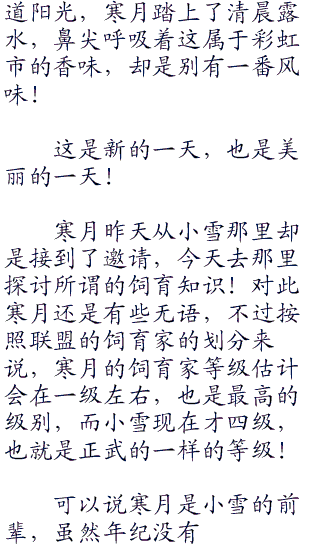 道阳光，寒月踏上了清晨露
水，鼻尖呼吸着这属于彩虹
市的香味，却是别有一番风
味！
这是新的一天，也是美
丽的一天！
寒月昨天从小雪那里却
是接到了邀请，今天去那里
探讨所谓的饲育知识！对此
寒月还是有些无语，不过按
照联盟的饲育家的划分来
说，寒月的饲育家等级估计
会在一级左右，也是最高的
级别，而小雪现在才四级，
也就是正武的一样的等级！
可以说寒月是小雪的前
辈，虽然年纪没有